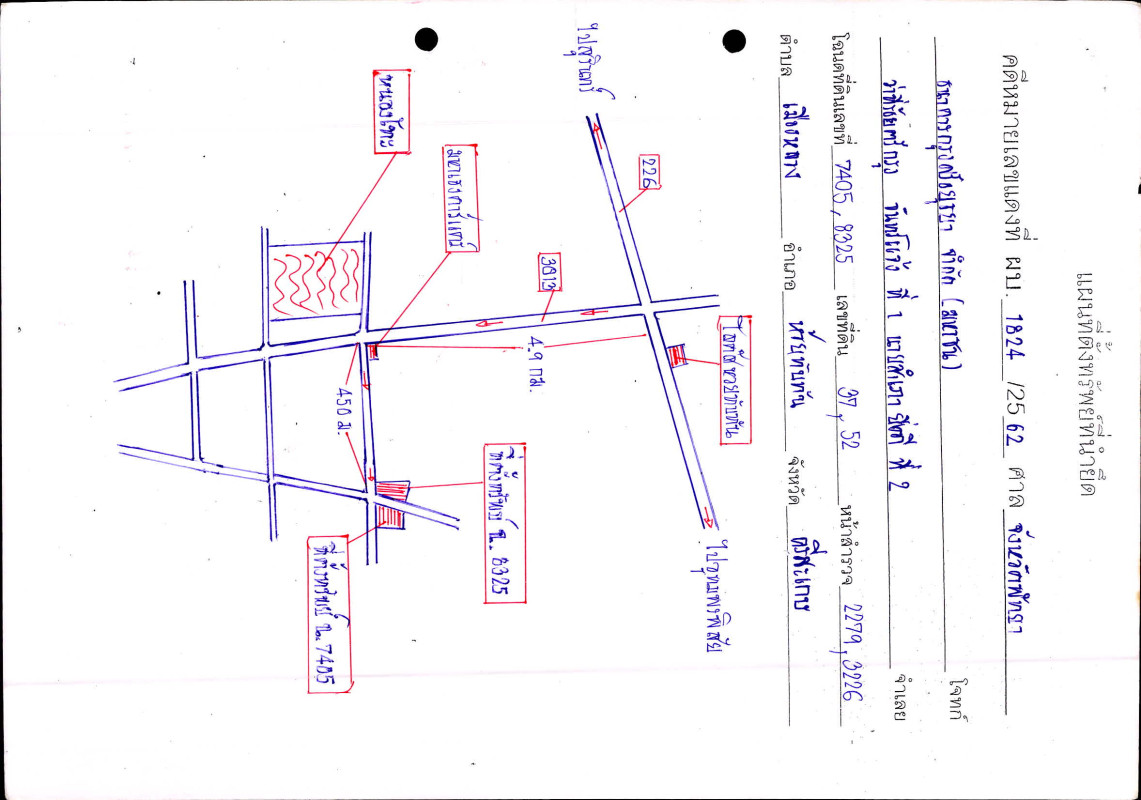 แผนที่ตั้งทรัพย์ที่นำยึด
คดีหมายเลขแดงที่ ผบ. 1824 /2562 ศาล จังหวัดพัทยา
ธนาคารกรุงศรีอยุธยา จำกัด (มหาชน) โจทก์
ว่าที่ร้อยตรีกรุง จันทร์แจ้ง ที่ 1 ที่ 2 จำเลย
โฉนดที่ดินเลขที่ 7405, 8325 เลขที่ดิน 37, 52 หน้าสำรวจ 2279, 3226
ตำบล เมืองหลวง อำเภอ ห้วยทับทัน จังหวัด ศรีสะเกษ
ไปสุรินทร์
226
โลตัส ห้วยทับทัน
ไปอุทุมพรพิสัย
3013
4.9 กม.
450 ม.
ที่ตั้งทรัพย์ ฉ. 8325
ที่ตั้งทรัพย์ ฉ. 7405